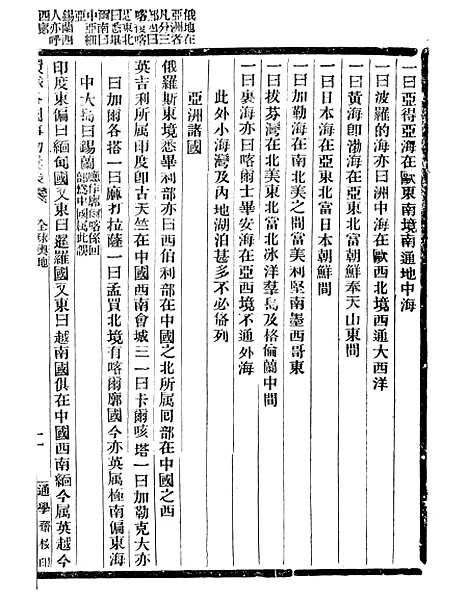 一曰亞得亞海在歐東南境南通地中海
一曰波羅的海亦曰洲中海在歐西北境西通大西洋
一曰黃海卽渤海在亞東北當朝鮮奉天山東間
一曰日本海在亞東北當日本朝鮮間
一曰加勒海在南北美之間當美利堅南墨西哥東
一曰拔芬灣在北美東北當北冰洋羣島及格倫蘭中間
一曰裏海亦曰喀爾士畢安海在亞西境不通外海
此外小海灣及內地湖泊甚多不必俻列
亞洲諸國
俄羅斯東境悉畢利部亦曰西伯利部在中國之北所属囘部在中國之西
英吉利所属印度卽古天竺在中國西南會城三一曰卡爾咳塔一曰加勒克大亦
曰加爾各搭一曰麻打拉薩一曰孟買北境有喀爾廓國今亦英属極南偏東海
中大島曰錫蘭
印度東偏曰緬甸國又東曰暹羅國又東曰越南國俱在中國西南緬今属英越今
全球輿地
通學齋校印
俄地在
亞洲者
凡分三